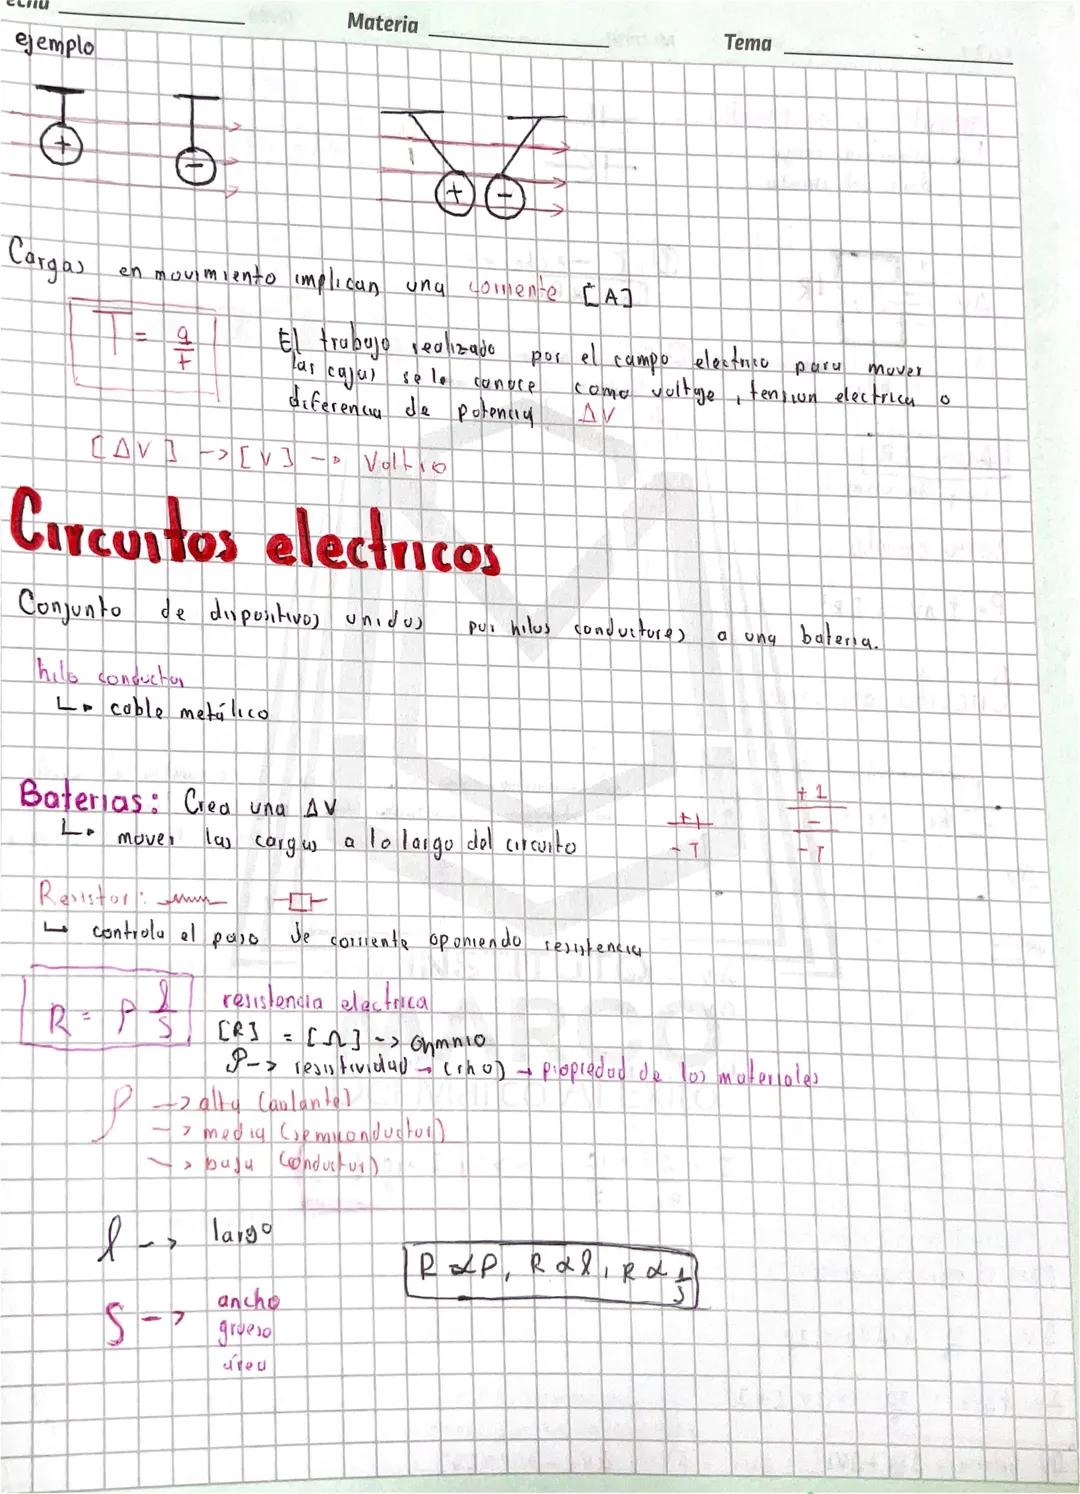 echa Materia Tema
ejemplo
+ - + -
Cargas en movimiento implican una corriente [A]
I = q/t
El trabajo realizado por el campo electrico para mover
las cajas se le conoce como voltaje, tension electrica o
diferencia de potencia ΔV
[ΔV] -> [V] -> Voltio
Circuitos electricos
Conjunto de dispositivos unidos por hilos conductores a una bateria.
hilo conductor
↳ cable metálico
Baterias: Crea una ΔV
↳ mover las cargas a lo largo del circuito
Resistor:
↳ controla el paso de corriente oponiendo resistencia
R = ρ l/S
resistencia electrica
[R] = [Ω] -> Ohmnio
ρ -> resistividad → (rho) → propiedad de los materiales
ρ -> alta (aislante)
-> media (semiconductor)
-> baja (conductor)
l --> largo
R α ρ, R α l, R α 1/S
S --> ancho
grueso
área